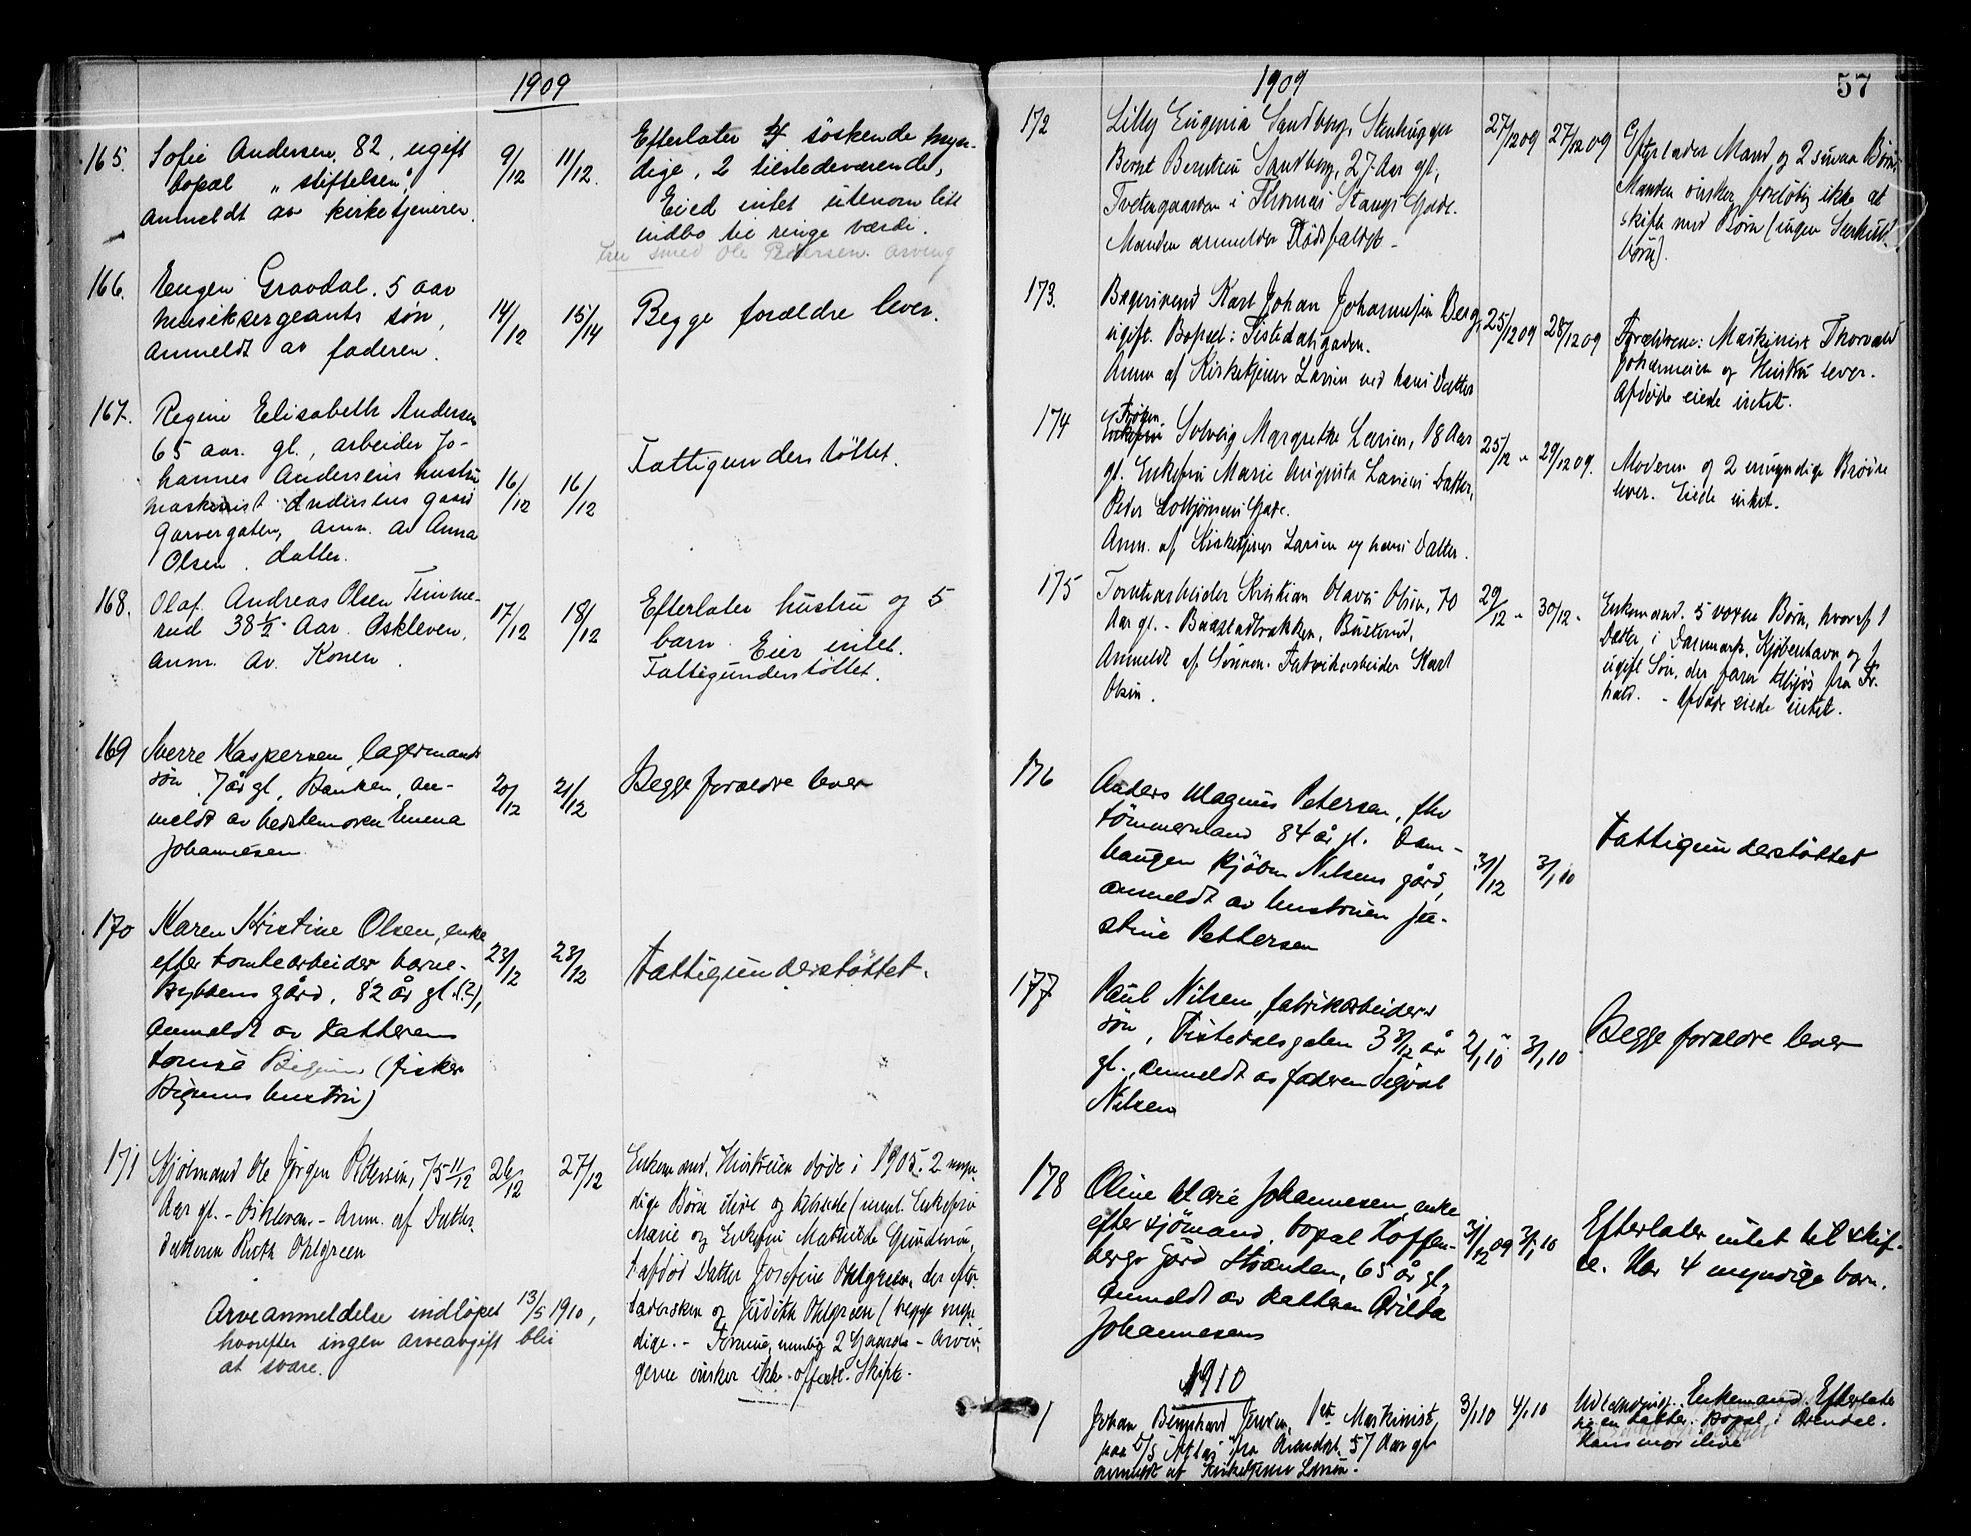 1909
165. Sofie Andersen, 82, ugift
bopæl "stiftelsen",
anmeldt av kirketjeneren.
9/12 11/12.
Efterlater 4 söskende myn-
dige, 2 tilstedeværende,
Eied intet utenom litt
indbo til ringe værdi.
smed Ole Pedersen arving
166. Eugen Gravdal. 5 aar
musiksergeants søn,
anmeldt av faderen.
14/12 15/14
Begge forældre lever.
167. Regine Elisabeth Andersen
65 aar. gl., arbeider Jo-
hannes Andersens hustru
maskinist Andersens gaard
Garvergaten, anm. av Anna
Olsen. datter.
16/12 16/12
Fattigunderstöttet.
168. Olaf Andreas Olsen Timme-
rud 38 1/2 Aar. Öskleven,
anm. av Konen.
17/12 18/12
Efterlater hustru og 5
barn. Eier intet.
Fattigunderstöttet.
169 Sverre Kaspersen, lagermands
sön, 7 år gl, Banken, an-
meldt av bedstemoren Emma
Johannesen
20/12 21/12
Begge foraldre lever
170 Karen Kristine Olsen, enke
efter tomtearbeider
gård, 82 år gl. (?),
anmeldt av datteren
(fisker
hustru)
23/12 23/12
Fattigunderstöttet.
171 Sjömand Ole Jørgen Pedersen, 75 11/12
Aar gl. - Öskleven - Anm. af Datter-
datteren Ruth Ohlgreen
26/12 27/12
Enkemand. Hustruen døde i 1905. 2 myn-
dige Børn ilive og tilstede (nemlig Enkefru
Marie og Enkefru Mathilde Gundersen,
1 afdød Datter Josefine Ohlgreen, der efter-
lader og Judith Ohlgreen (begge myn-
dige. - Formue, nemlig 2 Gaarde - Arvin-
gerne ønsker ikke offentl. Skifte.
Arveanmeldelse indlöpet 13/5 1910,
hvorefter ingen arveavgift blir
at svare.
1909
57
172 Lilly Eugenia Sandberg, Stenhugger
Bernt Sandberg, 27 Aar gl,
Tvetengaarden i Thomas Stangs Gade.
Manden anmelder Dødsfaldet -
27/12 09 27/12 09
Efterlader Mand og 2 smaa Børn
Manden ønsker foreløbig ikke at
skifte med Børn (ingen Særkuld-
børn).
173. Bagersvend Karl Johan Johannesen Berg,
ugift. Bopæl: Tistedalsgaden.
Anm af Kirketjener Larsen ved hans Datter
25/12 09 28/12 09
Forældrene: Maskinist Thorvald
Johannesen og Hustru lever.
Afdøde eiede intet.
174 Frøken
Solveig Margrethe Larsen, 18 Aar
gl. Enkefru Marie Augusta Larsens Datter,
Peder Colbjørnsens Gade.
Anm. af Kirketjener Larsen og hans Datter.
25/12 " 29/12 09.
Moderen og 2 umyndige Brødre
lever. Eiede intet.
175 Tomtearbeider Kristian Olaves Olsen, 70
Aar gl. - Baastadbrækken, Busterud,
Anmeldt af Sønnen. Fabrikarbeider Karl
Olsen.
29/12 " 30/12 "
Enkemand. 5 voxne Børn, hvoraf 1
Datter i Danmark, Kjøbenhavn og 1
ugift Søn, der farer tilsjøs fra Fr.
hald. - Afdøde eiede intet.
176 Anders Magnus Petersen, fhv
tömmermand 84 år gl. Dam-
haugen Kjöbm Nilsens gård,
anmeldt av hustruen Ju-
stine Pettersen
31/12 3/1 10
Fattigunderstöttet
177 Paul Nilsen, fabrikarbeiders
sön, Tistedalsgaten 3 3/12 år
gl., anmeldt av faderen Sigvat
Nilsen
2/1 10 3/1 10
Begge foraldre lever
178 Oline Marie Johannesen, enke
efter sjömand, bopæl Hoffen-
bergs gård Stranden, 65 år gl,
anmeldt av datteren
Johannesen
31/12 09 3/1 10
Efterlater intet til skif-
te. Har 4 myndige barn.
1910
1 Johan Bernhard Jensen, 1ste Maskinist,
paa D/S "Atlas" fra Arendal. 57 Aar gl
anmeldt af Kirketjener Larsen.
3/1 10 4/1 10
Enkemand. Efterlater
en datter. Bopæl i Arendal.
Hans mor ilive